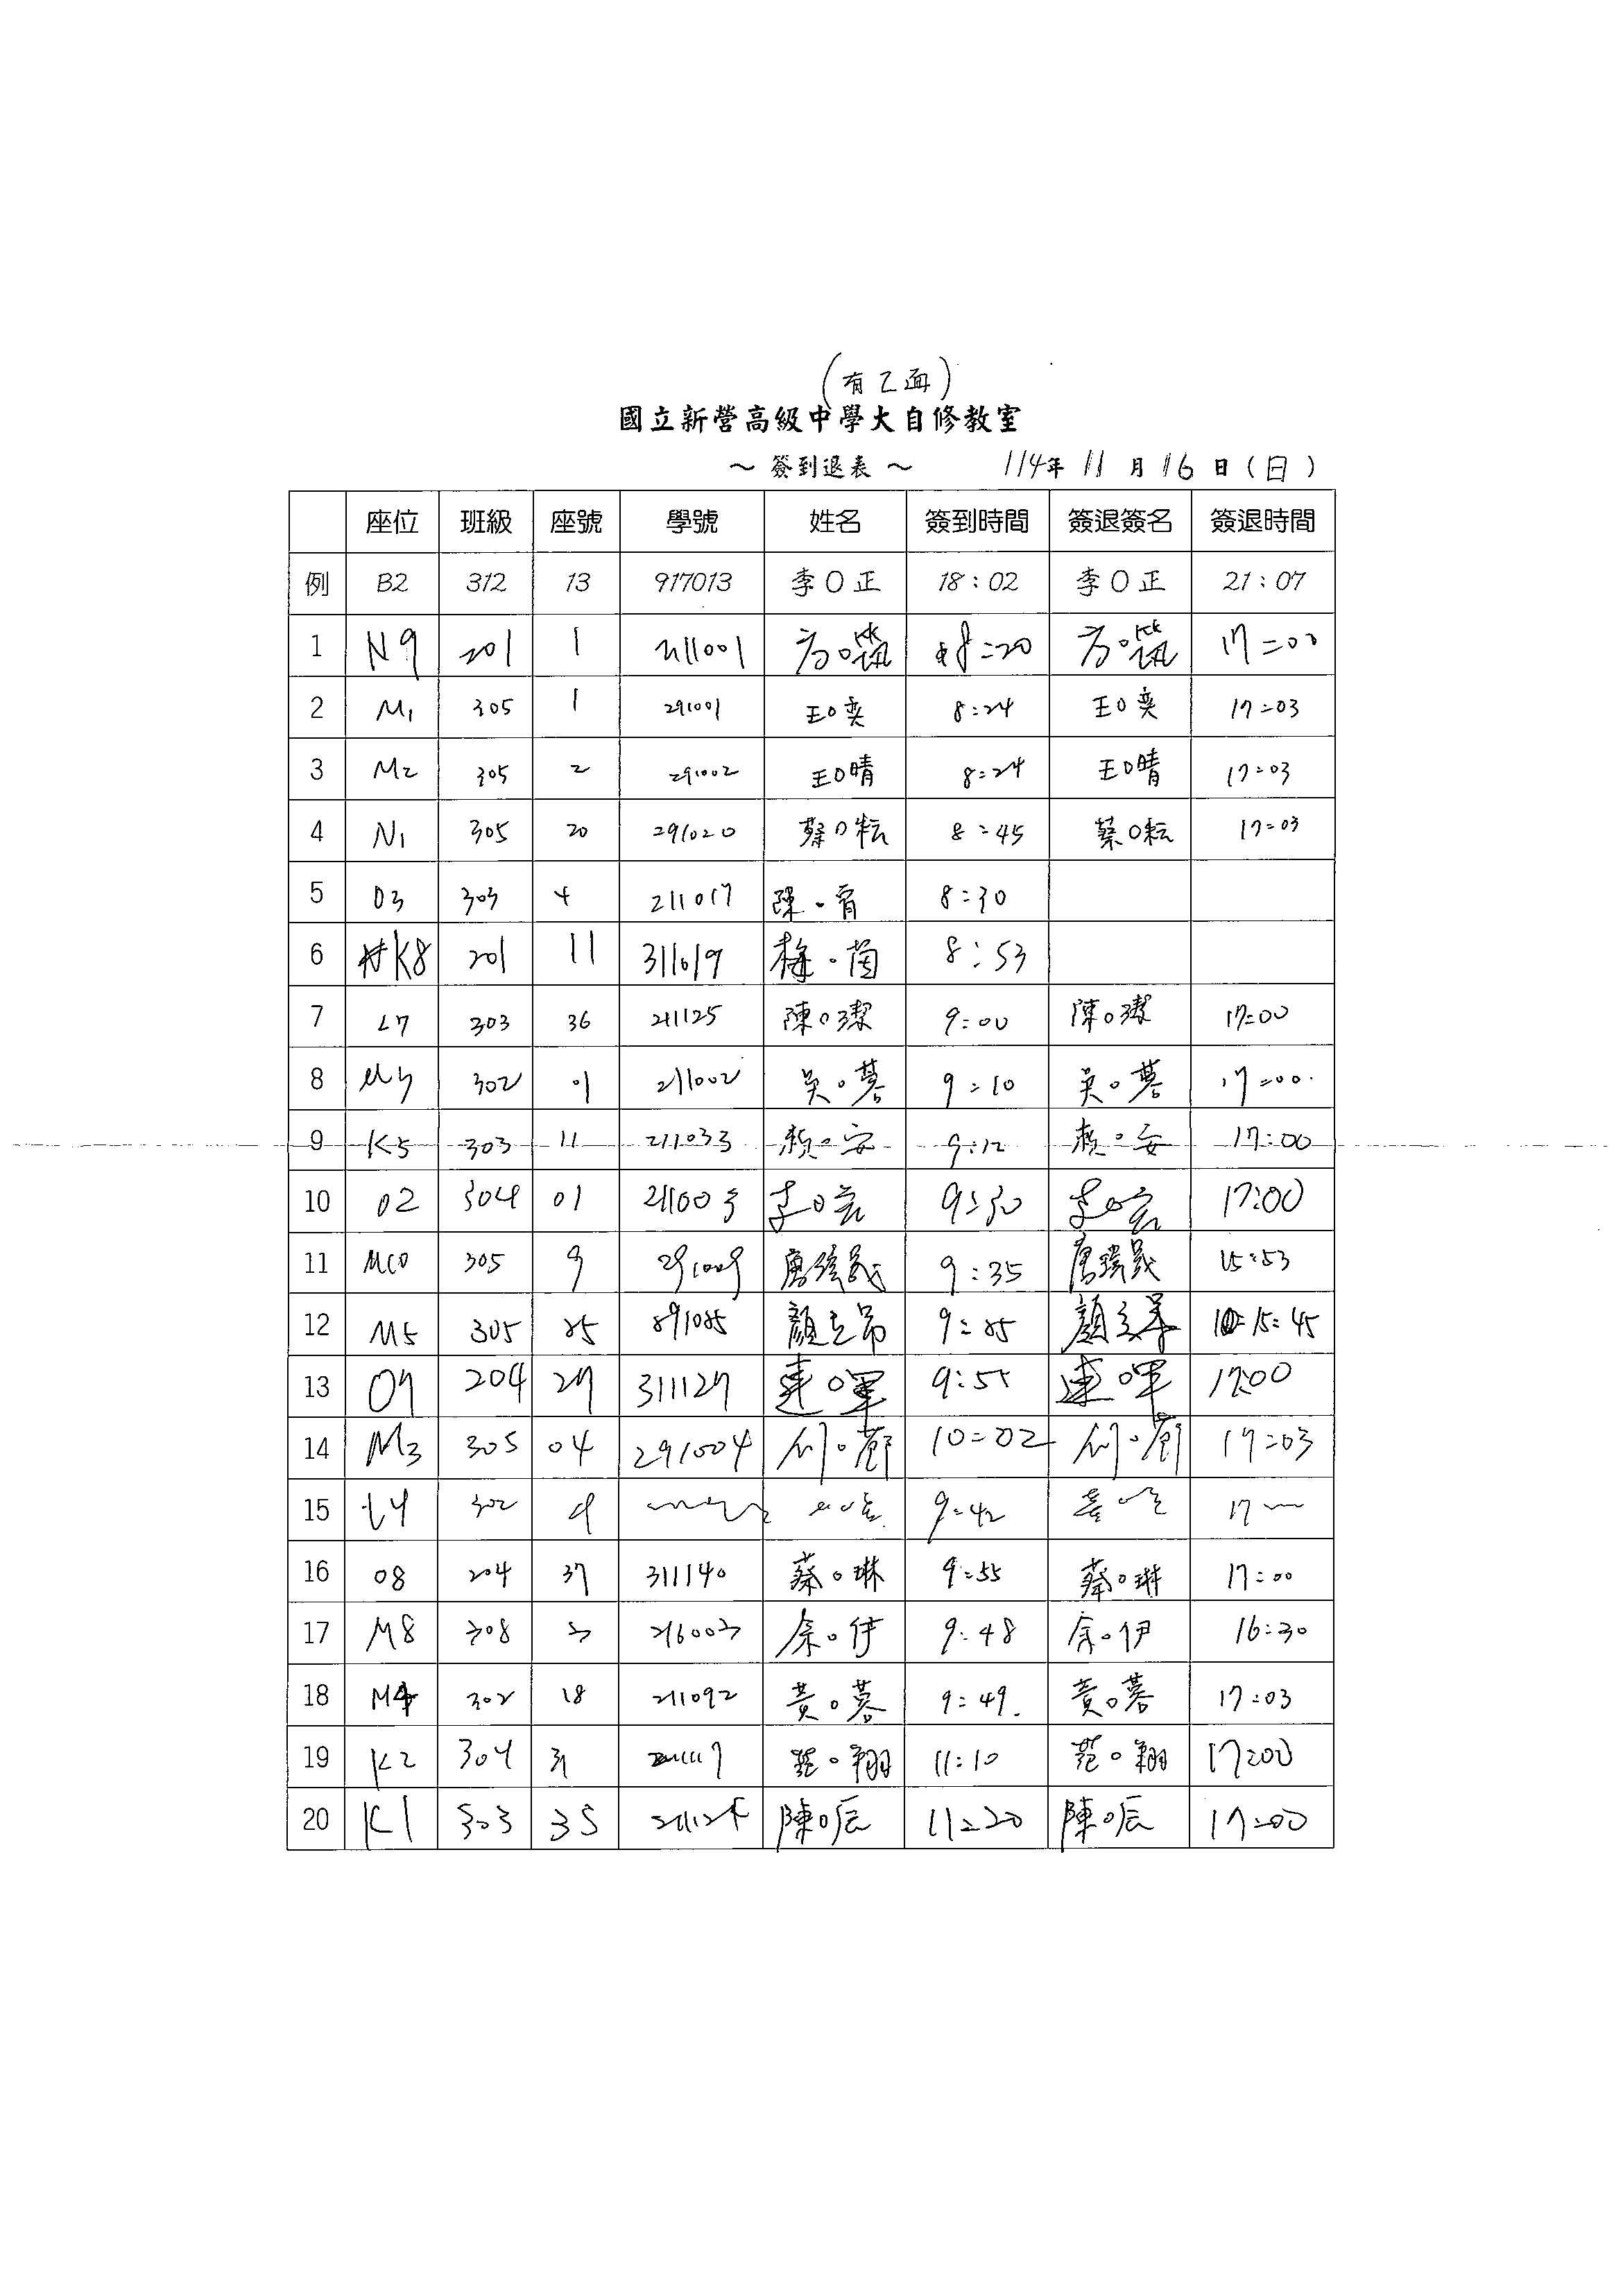 (有乙面)
國立新營高級中學大自修教室
～ 簽到退表 ～ 114年 11 月 16 日 (日)
座位 班級 座號 學號 姓名 簽到時間 簽退簽名 簽退時間
例 B2 312 13 917013 李O正 18:02 李O正 21:07
1 N9 201 1 211001 方O 8:20 方O 17:00
2 M1 305 1 291001 王O奕 8:24 王O奕 17:03
3 M2 305 2 291002 王O晴 8:24 王O晴 17:03
4 N1 305 20 291020 蔡O耘 8:45 蔡O耘 17:03
5 03 303 4 211017 陳O宥 8:30
6 K8 201 11 311019 8:53
7 L7 303 36 211125 陳O潔 9:00 陳O潔 17:00
8 302 01 211002 吳O蓁 9:10 吳O蓁 17:00
9 K5 303 11 211033 賴O安 9:12 賴O安 17:00
10 02 304 01 211003 李O宸 9:30 李O宸 17:00
11 M10 305 9 291009 9:35 15:53
12 M5 305 25 291025 顏立昂 9:25 顏立昂 15:45
13 07 204 27 311127 連O暉 9:55 連O暉 17:00
14 M3 305 04 291004 10:02 17:03
15 302 9:42 17
16 08 204 37 311140 蔡O琳 9:55 蔡O琳 17:00
17 M8 308 3 216003 余O伊 9:48 余O伊 16:30
18 M4 302 18 211092 黃O蓉 9:49 黃O蓉 17:03
19 K2 304 范O翔 11:10 范O翔 17:00
20 K1 303 35 陳O辰 11:20 陳O辰 17:00